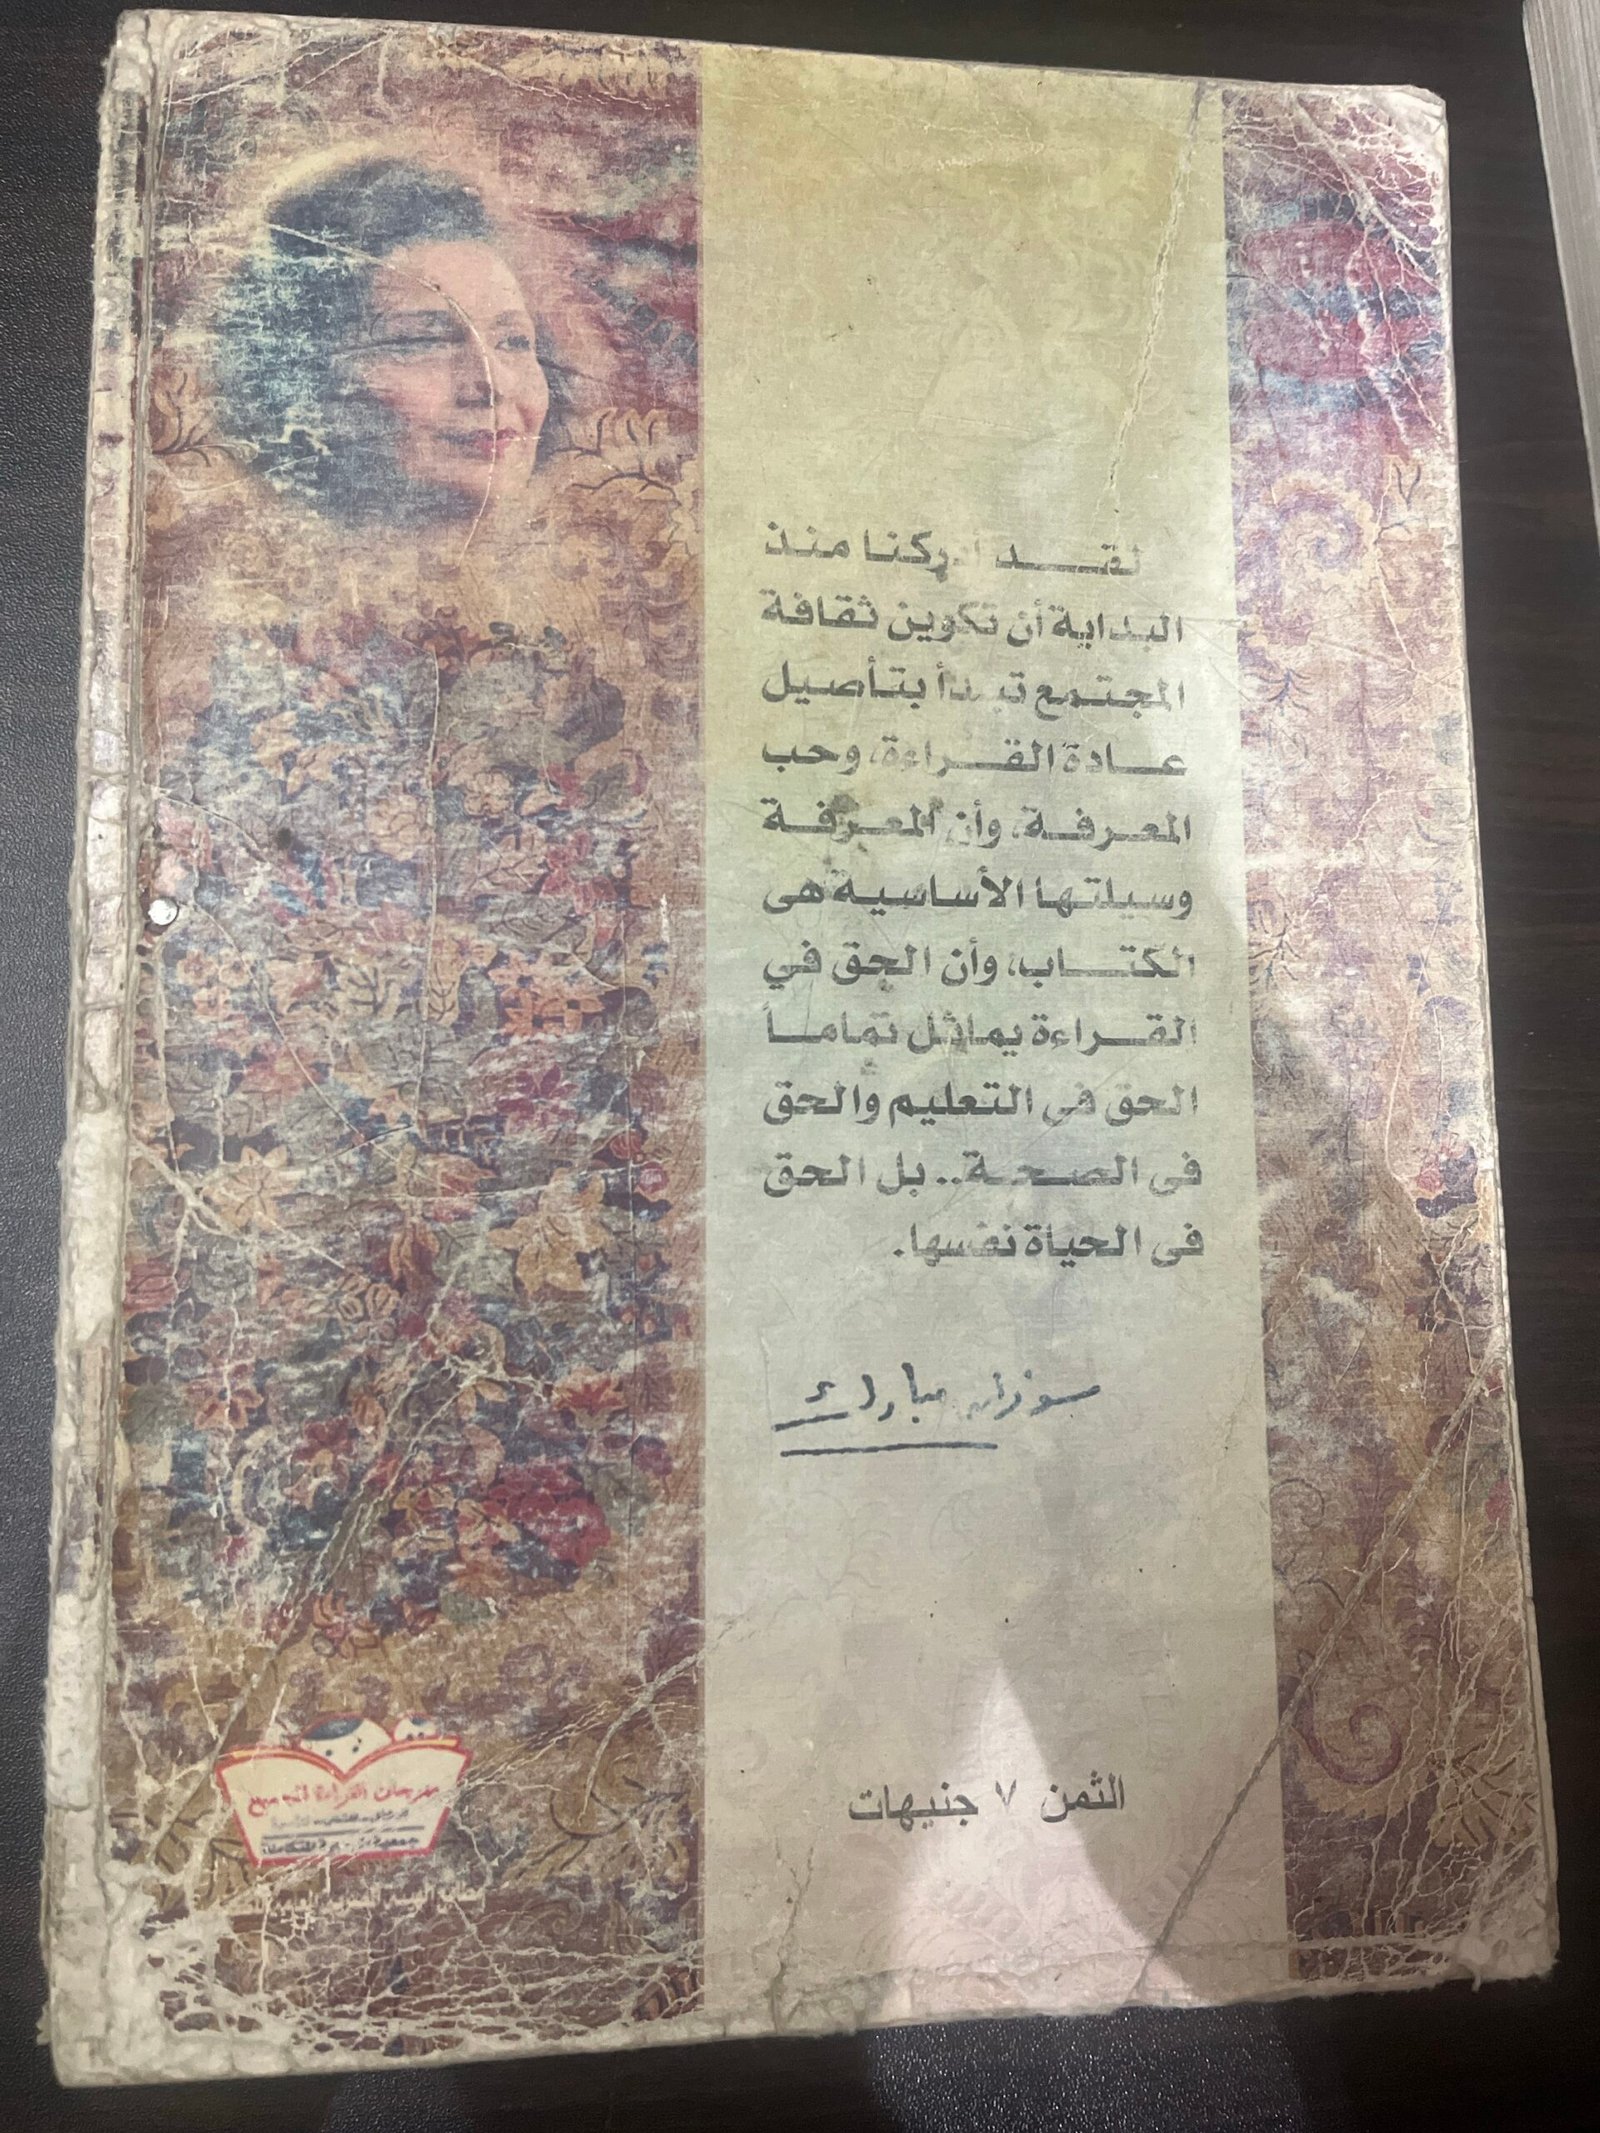 لقد أدركنا منذ
البداية أن تكوين ثقافة
المجتمع تبدأ بتأصيل
عادة القراءة، وحب
المعرفة، وأن المعرفة
وسيلتها الأساسية هى
الكتاب، وأن الحق في
القراءة يماثل تماماً
الحق فى التعليم والحق
فى الصحة.. بل الحق
فى الحياة نفسها.
سوزان مبارك
الثمن ٧ جنيهات
مهرجان القراءة للجميع
جمعية الرعاية المتكاملة
مطابع الهيئة المصرية العامة للكتاب